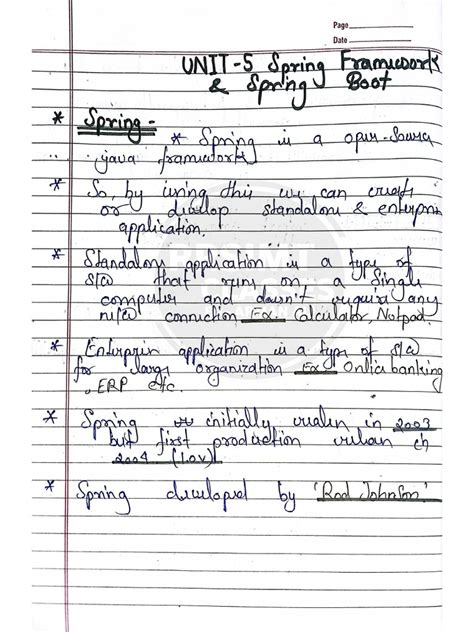 Page
Date
UNIT-5 Spring Framework
& Spring Boot
* Spring -
* Spring is a open-source
java framework
* So, by using this we can create
or develop standalone & enterprise
application.
* Standalone application is a type of
s/w that runs on a single
computer and doesn't require any
n/w connection Ex. Calculator, Notpad.
* Enterprise application is a type of s/w
for large organization Ex: Online banking
, ERP etc.
* Spring initially realse in 2003
but first production release in
2004 (1.0v)
* Spring developed by 'Rod Johnson'